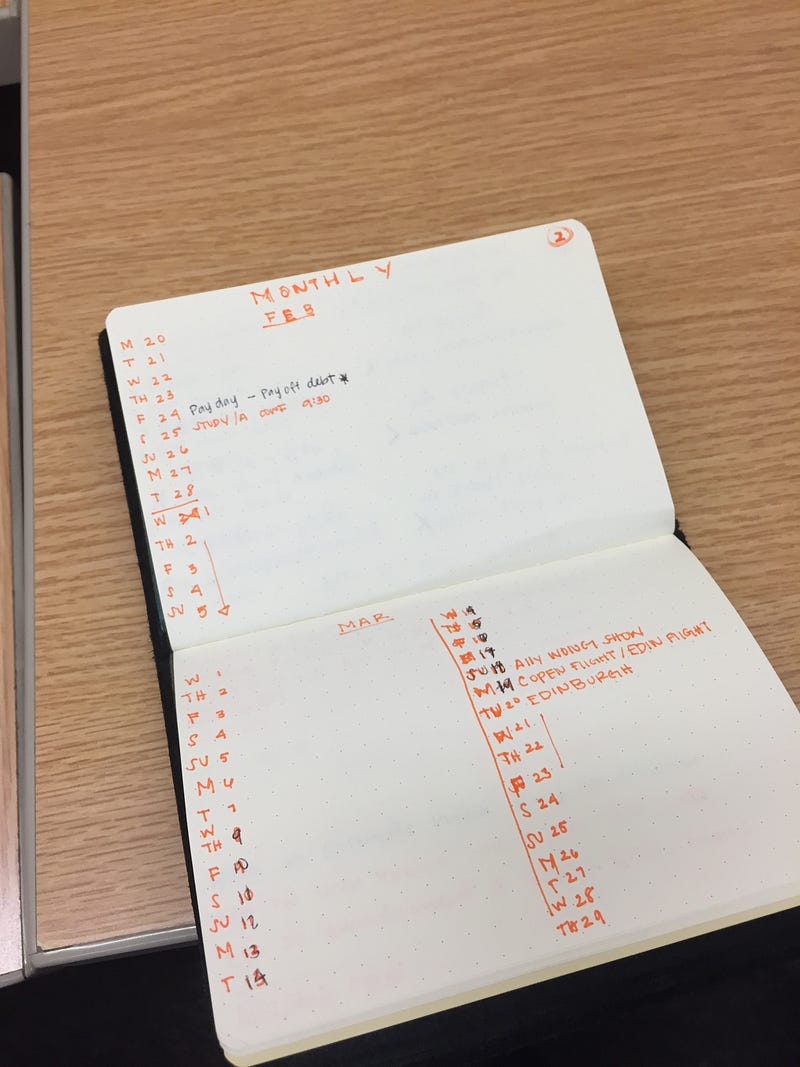 2
MONTHLY
FEB
M 20
T 21
W 22
TH 23
F 24 Payday - Pay off debt*
S 25 STUDY/A CONF 9:30
SU 26
M 27
T 28
W 1
TH 2
F 3
S 4
SU 5
MAR
W 1
TH 2
F 3
S 4
SU 5
M 6
T 7
W
TH 9
F
S
SU 12
M 13
T 14
W
TH
17
SU 18 ALLY WONG SHOW
M 19 COPEN FLIGHT/EDIN FLIGHT
TU 20 EDINBURGH
W 21
TH 22
F 23
S 24
SU 25
M 26
T 27
W 28
TH 29